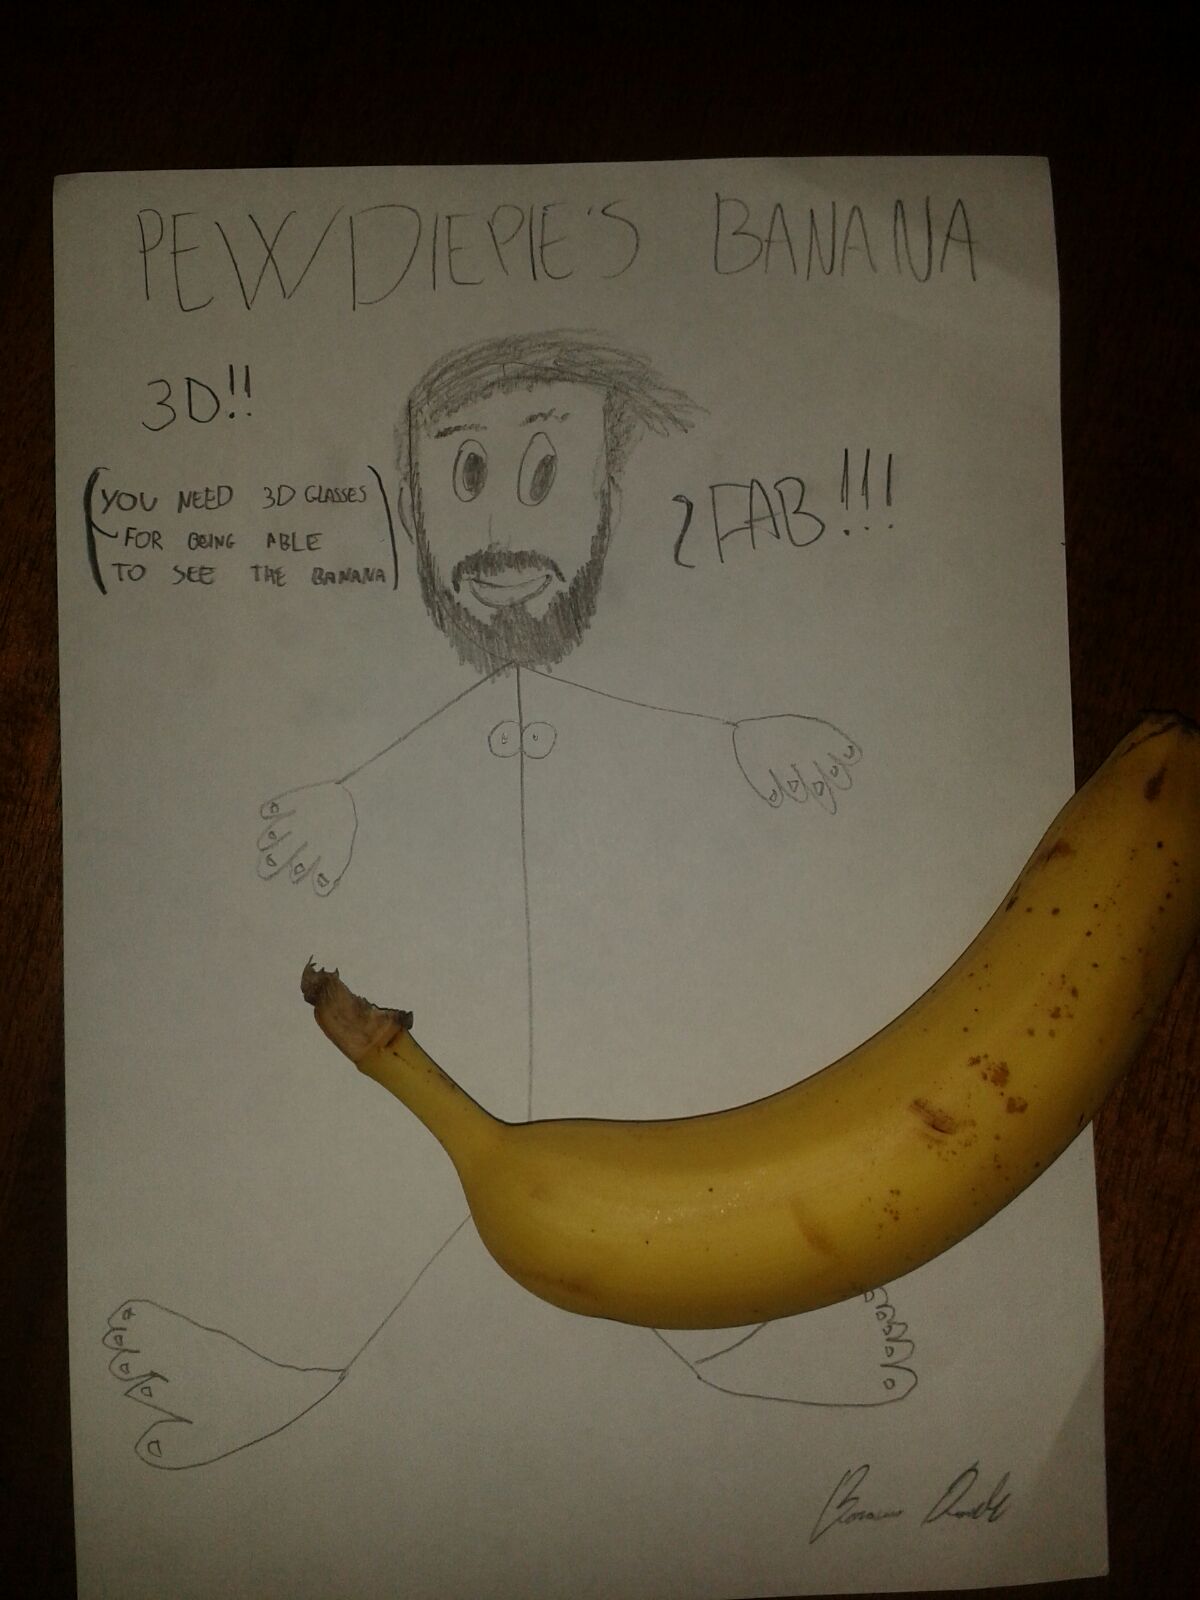 PEWDIEPIE'S BANANA
3D!!
(YOU NEED 3D GLASSES
FOR BEING ABLE
TO SEE THE BANANA)
2FAB!!!